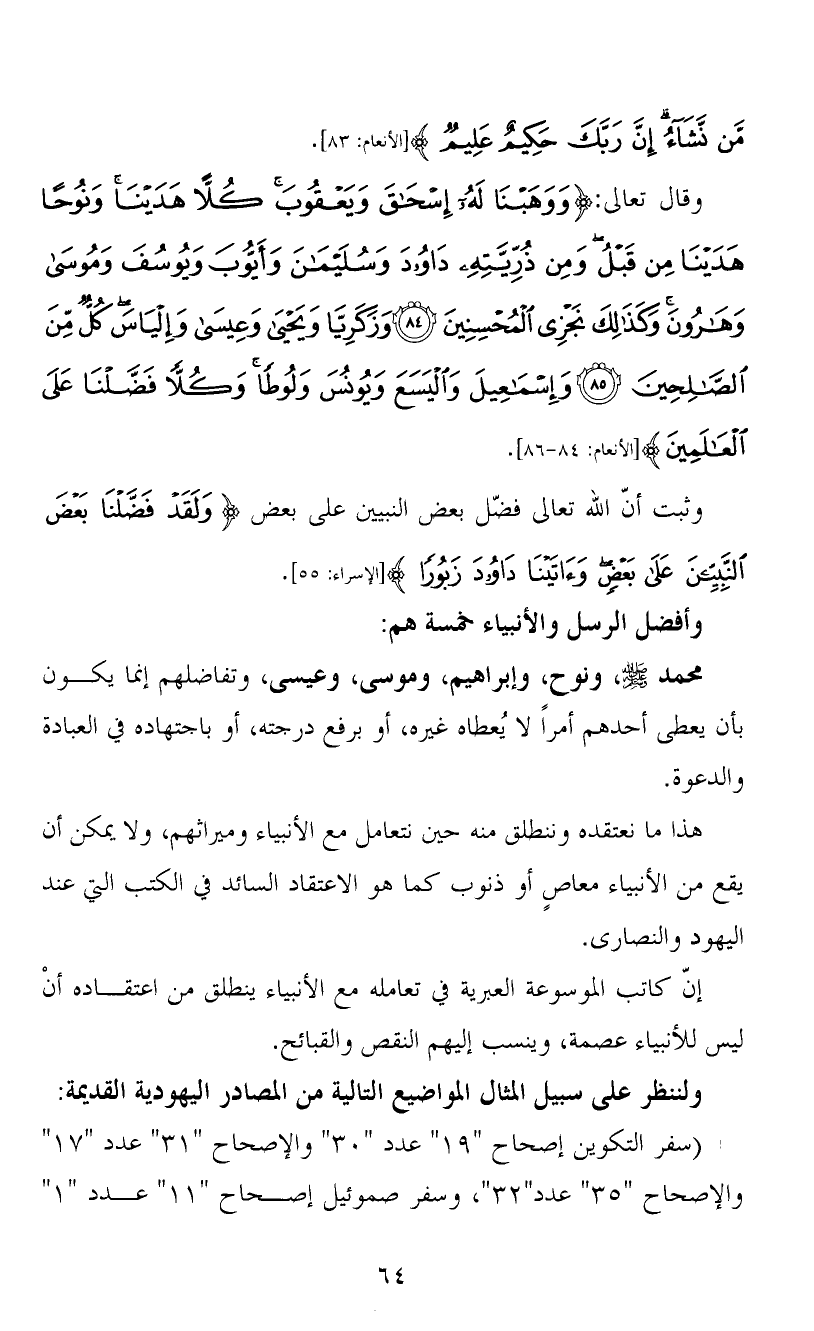 مَّن نَّشَآءُ ۗ إِنَّ رَبَّكَ حَكِيمٌ عَلِيمٌ ﴾[الأنعام: ٨٣].
وقال تعالى:﴿ وَوَهَبْنَا لَهُۥٓ إِسْحَٰقَ وَيَعْقُوبَ ۚ كُلًّا هَدَيْنَا ۚ وَنُوحًا
هَدَيْنَا مِن قَبْلُ ۖ وَمِن ذُرِّيَّتِهِۦ دَاوُۥدَ وَسُلَيْمَٰنَ وَأَيُّوبَ وَيُوسُفَ وَمُوسَىٰ
وَهَٰرُونَ ۚ وَكَذَٰلِكَ نَجْزِى ٱلْمُحْسِنِينَ ﴿٨٤﴾ وَزَكَرِيَّا وَيَحْيَىٰ وَعِيسَىٰ وَإِلْيَاسَ ۖ كُلٌّ مِّنَ
ٱلصَّٰلِحِينَ ﴿٨٥﴾ وَإِسْمَٰعِيلَ وَٱلْيَسَعَ وَيُونُسَ وَلُوطًا ۚ وَكُلًّا فَضَّلْنَا عَلَى
ٱلْعَٰلَمِينَ ﴾[الأنعام: ٨٤-٨٦].
وثبت أنّ الله تعالى فضّل بعض النبيين على بعض ﴿ وَلَقَدْ فَضَّلْنَا بَعْضَ
ٱلنَّبِيِّـۧنَ عَلَىٰ بَعْضٍ ۖ وَءَاتَيْنَا دَاوُۥدَ زَبُورًا ﴾[الإسراء: ٥٥].
وأفضل الرسل والأنبياء خمسة هم:
محمد ﷺ، ونوح، وإبراهيم، وموسى، وعيسى، وتفاضلهم إنما يكـــون
بأن يعطى أحدهم أمراً لا يُعطاه غيره، أو برفع درجته، أو باجتهاده في العبادة
والدعوة.
هذا ما نعتقده وننطلق منه حين نتعامل مع الأنبياء وميراثهم، ولا يمكن أن
يقع من الأنبياء معاصٍ أو ذنوب كما هو الاعتقاد السائد في الكتب التي عند
اليهود والنصارى.
إنّ كاتب الموسوعة العبرية في تعامله مع الأنبياء ينطلق من اعتقـــاده أنْ
ليس للأنبياء عصمة، وينسب إليهم النقص والقبائح.
ولننظر على سبيل المثال المواضيع التالية من المصادر اليهودية القديمة:
(سفر التكوين إصحاح "١٩" عدد "٣٠" والإصحاح "٣١" عدد "١٧"
والإصحاح "٣٥" عدد"٣٢"، وسفر صموئيل إصـــحاح "١١" عـــدد "١"
٦٤